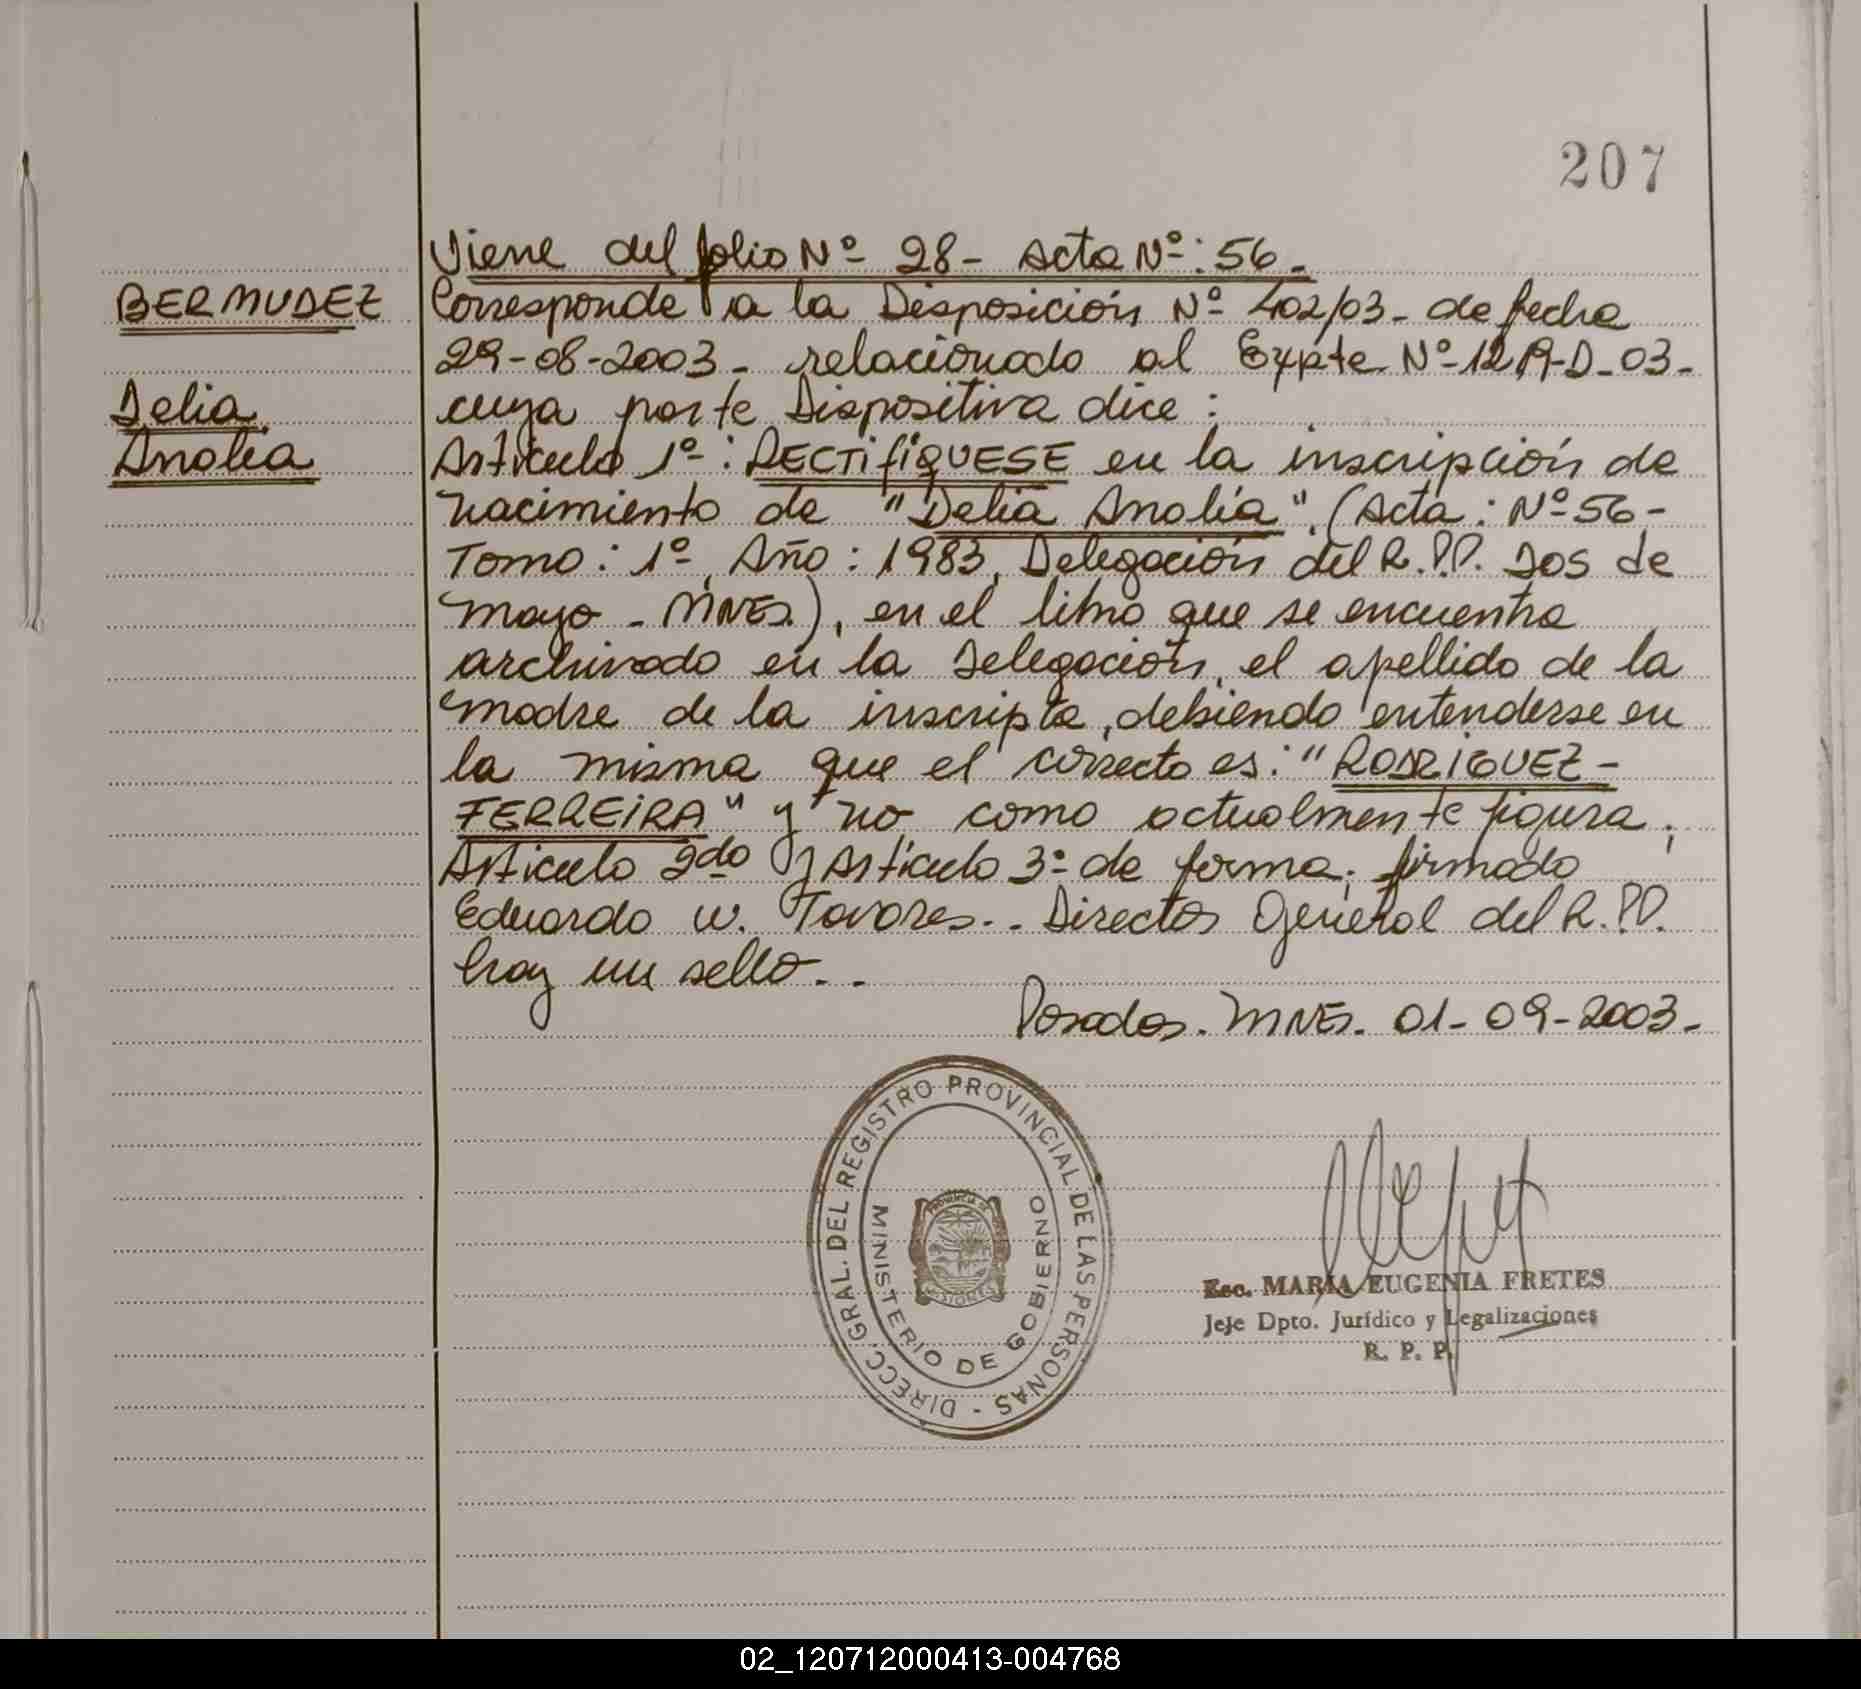 207
Viene del folio Nº 28- Acta Nº: 56-
BERMUDEZ
Corresponde a la Disposición Nº 402/03- de fecha
29-08-2003- relacionado al Expte Nº-1219-D-03-
Delia
cuya parte Dispositiva dice:
Analia
Artículo 1º: RECTIFIQUESE en la inscripción de
nacimiento de "Delia Analía". (Acta: Nº-56-
Tomo: 1º, Año: 1983, Delegación del R.P.P. Dos de
Mayo - MNES), en el libro que se encuentra
archivado en la Delegación, el apellido de la
madre de la inscripta, debiendo entenderse en
la misma que el correcto es: "RODRIGUEZ-
FERREIRA" y no como actualmente figura;
Artículo 2do y Artículo 3º de forma; firmado
Eduardo W. Tavares.. Director General del R.P.P.
hay un sello..
Posadas. MNES. 01-09-2003-
DIRECC. GRAL. DEL REGISTRO PROVINCIAL DE LAS PERSONAS -
MINISTERIO DE GOBIERNO
PROVINCIA DE
MISIONES
Esc. MARIA EUGENIA FRETES
Jefe Dpto. Jurídico y Legalizaciones
R. P. P.
02_120712000413-004768